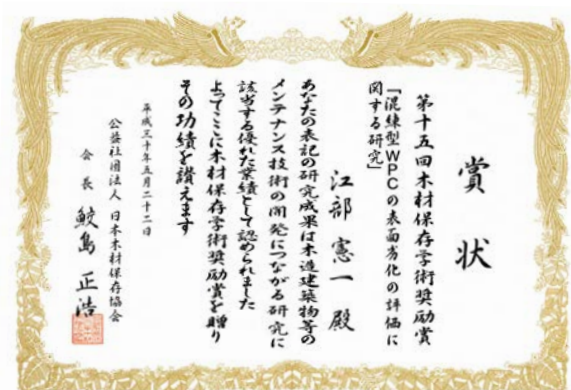 賞状
第十五回木材保存学術奨励賞
「混練型WPCの表面劣化の評価に
関する研究」
江部憲一殿
あなたの表記の研究成果は木造建築物等の
メンテナンス技術の開発につながる研究に
該当する優れた業績として認められました
よってここに木材保存学術奨励賞を贈り
その功績を讃えます
平成三十年五月二十二日
公益社団法人 日本木材保存協会
会長 鮫島正浩